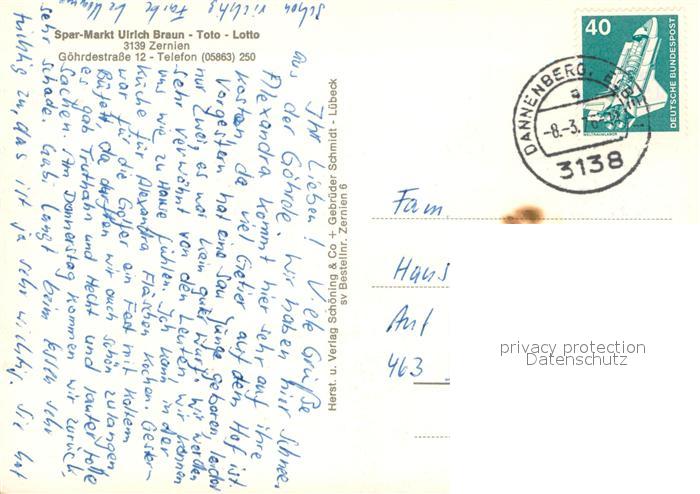 Sper-Markt Ulrich Braun - Toto - Lotto
3139 Zernien
Göhrdestraße 12 - Telefon (05863) 250
Ihr Lieben! Viele Grüße
aus der Göhrde. Wir haben hier Schnee.
Alexandra kommt hier sehr auf ihre
Kosten da viel Getier auf dem Hof ist.
Vorgestern hat eine Sau Junge geboren leider
nur zwei, es war kein guter Wurf. Wir werden
sehr verwöhnt von den Leuten. Wir können
uns wie zu Hause fühlen. Ich kann in der
Küche für Alexandra Fläschen kochen. Gester-
war für die Golfer ein Fest mit kaltem
Büfett, da durften wir auch schön zulangen
es gab Truthahn und Hecht und lauter tolle
Sachen. Am Donnerstag kommen wir zurück,
sehr schade. Gabi langt beim Essen sehr
tüchtig zu, das ist ja sehr wichtig. Sie hat
schon richtig Farbe
Herst. u. Verlag Schöning & Co + Gebrüder Schmidt - Lübeck
sv Bestellnr. Zernien 6
40
DEUTSCHE BUNDESPOST
WELTRAUMLABOR
DANNENBERG, ELBE
a
-8.-3.7
3138
Fam.
Hans
Auf
463
privacy protection
Datenschutz